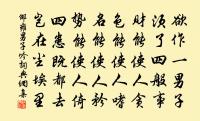 欲作一男子
須了四般事
財能使人貪
色能使人嗜
名能使人矜
勢能使人倚
四患既都去
豈在塵埃里
邵雍男子吟詞典網集